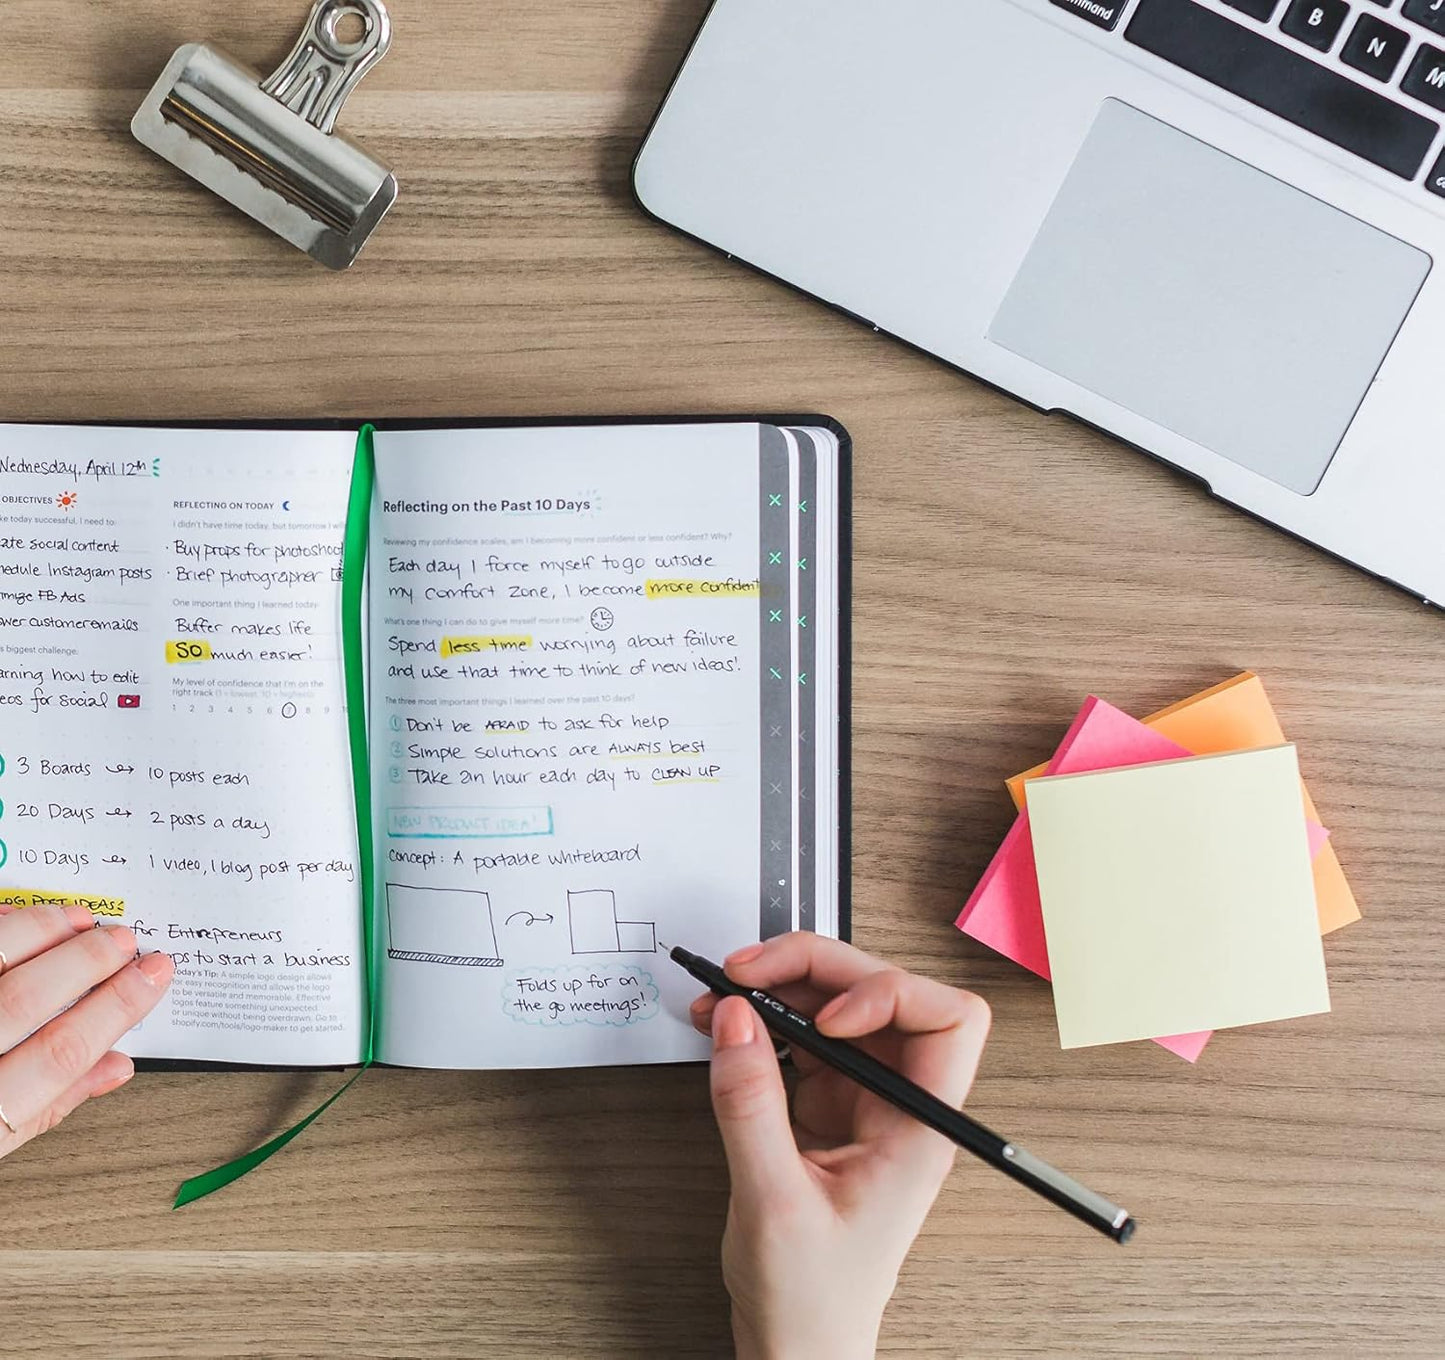 Wednesday, April 12th
OBJECTIVES
ke today successful, I need to:
ate social content
hedule Instagram posts
FB Ads
wer customer emails
s biggest challenge:
arning how to edit
eos for social
REFLECTING ON TODAY
I didn't have time today, but tomorrow I will
· Buy props for photoshoot
· Brief photographer
One important thing I learned today
Buffer makes life
SO much easier!
My level of confidence that I'm on the
right track (1 = lowest, 10 = highest)
1 2 3 4 5 6 7 8 9 1
3 Boards → 10 posts each
20 Days → 2 posts a day
10 Days → 1 video, 1 blog post per day
LOG POST IDEAS:
for Entrepreneurs
ps to start a business
Today's Tip: A simple logo design allows
for easy recognition and allows the logo
to be versatile and memorable. Effective
logos feature something unexpected
or unique without being overdrawn. Go to
shopify.com/tools/logo-maker to get started.
Reflecting on the Past 10 Days
Reviewing my confidence scales, am I becoming more confident or less confident? Why?
Each day I force myself to go outside
my comfort zone, I become more confident
What's one thing I can do to give myself more time?
Spend less time worrying about failure
and use that time to think of new ideas!
The three most important things I learned over the past 10 days?
1 Don't be AFRAID to ask for help
2 Simple solutions are ALWAYS best
3 Take an hour each day to CLEAN UP
NEW PRODUCT IDEA!
Concept: A portable whiteboard
Folds up for on
the go meetings!
command
B
N
M